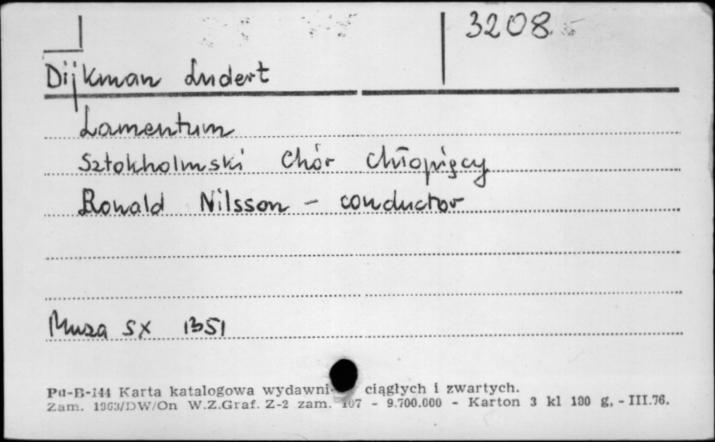 3208
Dijkman Ludert
Lamentum
Sztokholmski Chór chłopięcy
Ronald Nilsson - conductor
Muza SX 1351
Pu-B-144 Karta katalogowa wydawni ciągłych i zwartych.
Zam. 1963/DW/On W.Z.Graf. Z-2 zam. 107 - 9.700.000 - Karton 3 kl 180 g, - III.76.